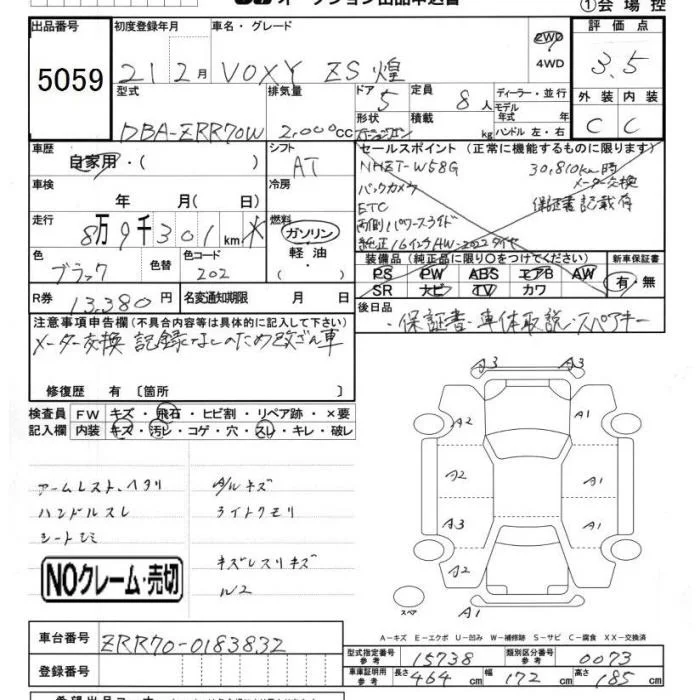 ①会場控
出品番号 初度登録年月 車名・グレード 2WD 評価点
5059 21 2月 VOXY ZS 煌 4WD 3.5
型式 排気量 ドア 5 定員 8人 ディーラー・並行 外装 内装
モデル年式 年式
DBA-ZRR70W 2,000cc 形状 積載 kg ハンドル 左・右 C C
車歴 シフト セールスポイント (正常に機能するものに限ります)
自家用・( ) AT NHZT-W58G 30,810km時
車検 冷房 バックカメラ メーター交換
年 月( 日) ETC 保証書記載有
走行 燃料 両側パワースライド
8万9千301km ガソリン 純正16インチAW-2022タイヤ
色 色替 色コード 軽油 装備品 (純正品に限り○をつけてください) 新車保証書
ブラック 202 ・( ) PS PW ABS エアB AW 有・無
SR ナビ TV カワ
R券 13,380円 名変通知期限 月 日 後日品
注意事項申告欄 (不具合内容等は具体的に記入して下さい) ・保証書・車体取説・スペアキー
メーター交換 記録なしのため改ざん車
修復歴 有〔箇所 〕
検査員 FW キズ・飛石・ヒビ割・リペア跡・×要
記入欄 内装 キズ・汚レ・コゲ・穴・スレ・キレ・破レ
アームレスト、ヘタリ
ハンドルスレ ライトクモリ
シートシミ
キズレスリキズ
NOクレーム・売切
A3 A3
A2 A1
A2 A1
A3 A1
A2 A1
スペア A1
A-キズ E-エクボ U-凹み W-補修跡 S-サビ C-腐食 XX-交換済
車台番号 ZRR70-0183832
型式指定番号 参考 15738 類別区分番号 参考 0073
登録番号 車庫証明用 参考 長さ 464cm 幅 172cm 高さ 185cm